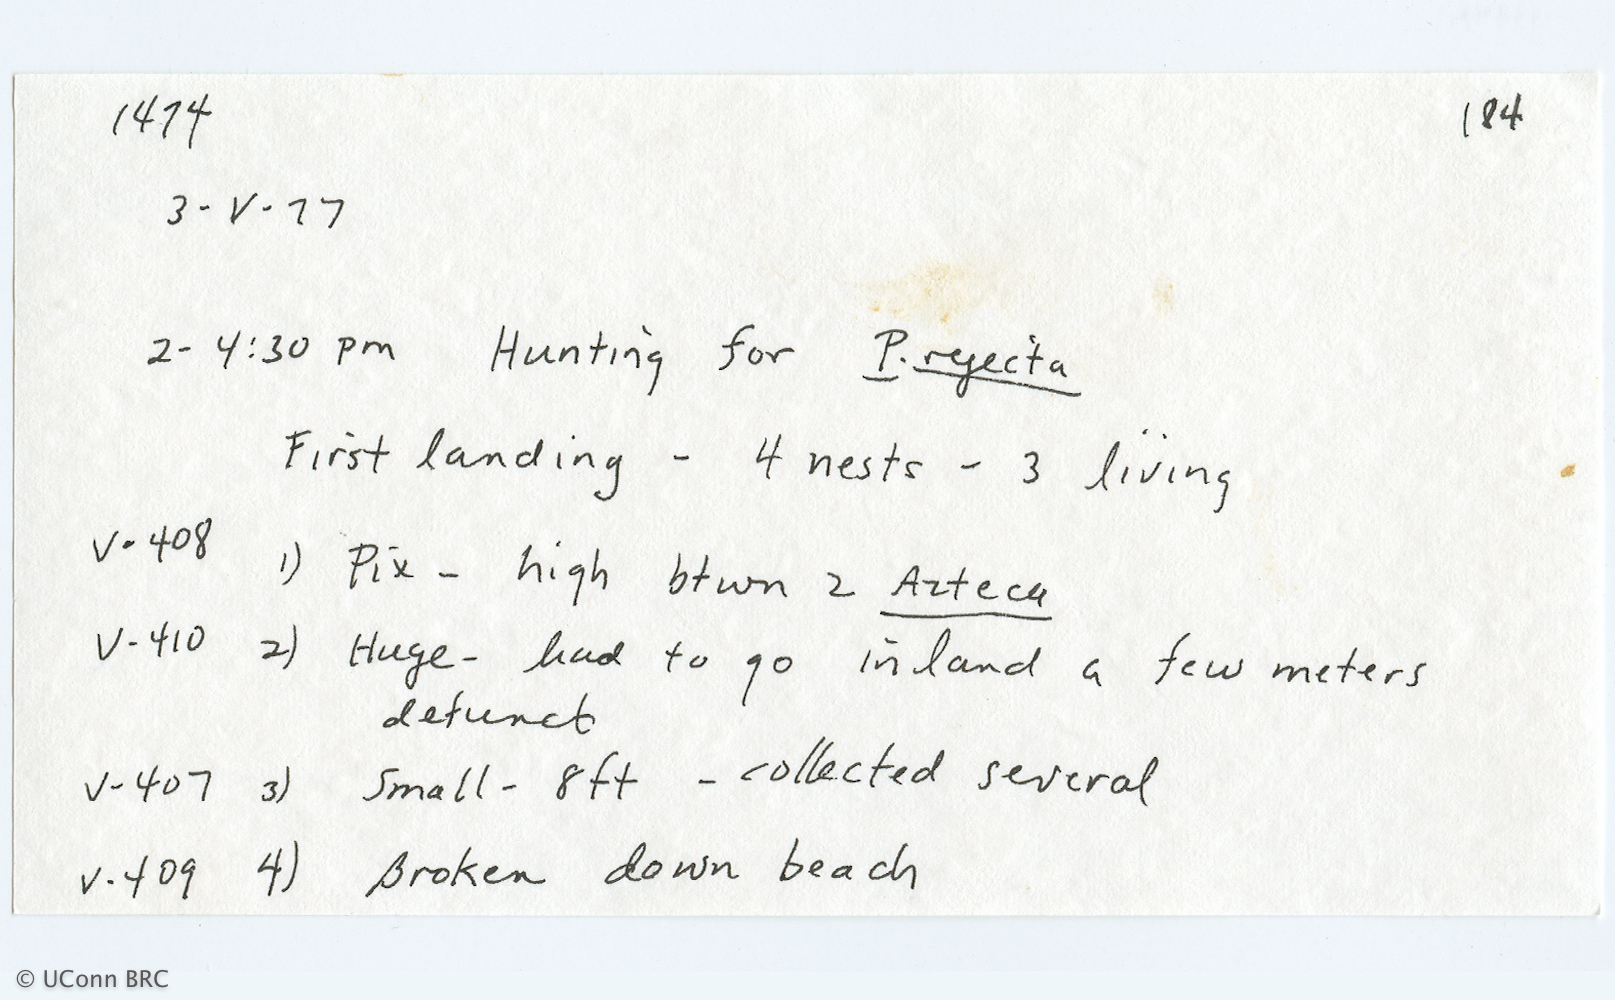 1474
184
3-V-77
2-4:30 pm Hunting for P. rejecta
First landing - 4 nests - 3 living
V-408 1) Pix - high btwn 2 Azteca
V-410 2) Huge - had to go inland a few meters
defunct
V-407 3) Small - 8ft - collected several
V-409 4) Broken down beach
© UConn BRC